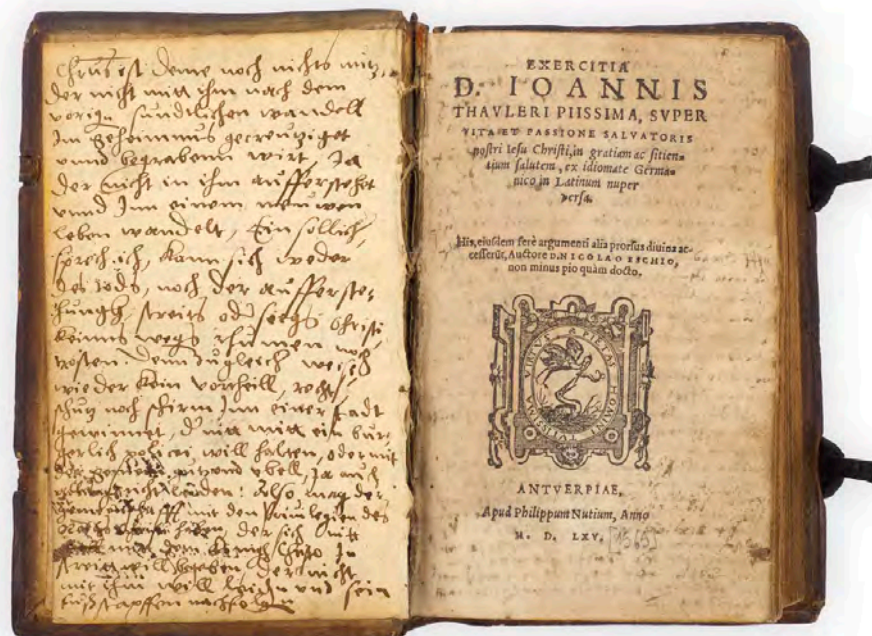 Chrus ist deme noch nichts nutz,
der nicht mitt ihm nach dem
vorign sundtlichen wandell
Im geheimnus gecreutziget
vnnd begrabenn wirt, Ja
der nicht in ihm aufferstehet
vnnd Inn einem neuwen
leben wandelt, Ein sollich,
sprech ich, kann sich weder
des tods, noch der aufferste,
hungh, streits od siegs Christi
keinns wegs rhumen noch
trosten. denn zugleich weis
wie der kein vortheill, recht,
schutz noch schirm Inn einer stadt
gewinnet, d nitt mitt ein bur,
gerlich policei, will halten, oder mit
der gemein nutz vnd vbell, Ja auch
nicht leyden: Also mag der
mit den priuilegien des
haben, der sich nitt
mitt dem König Christo In
streitt will begeben der nicht
mit Ihm will leiden vnd sein
fußstapffen nachfolgen
EXERCITIA
D. IOANNIS
THAVLERI PIISSIMA, SVPER
VITA ET PASSIONE SALVATORIS
nostri Iesu Christi, in gratiam ac sitien=
tium salutem, ex idiomate Germa=
nico in Latinum nuper
versa.
His, eiusdem ferè argumenti alia prorsus diuina ac-
cesserūt, Auctore D. NICOLAO ESCHIO,
non minus pio quàm docto.
PIETAS HOMINI TVTISSIMA VIRTVS
ANTVERPIAE,
Apud Philippum Nutium, Anno
M. D. LXV. [1565]